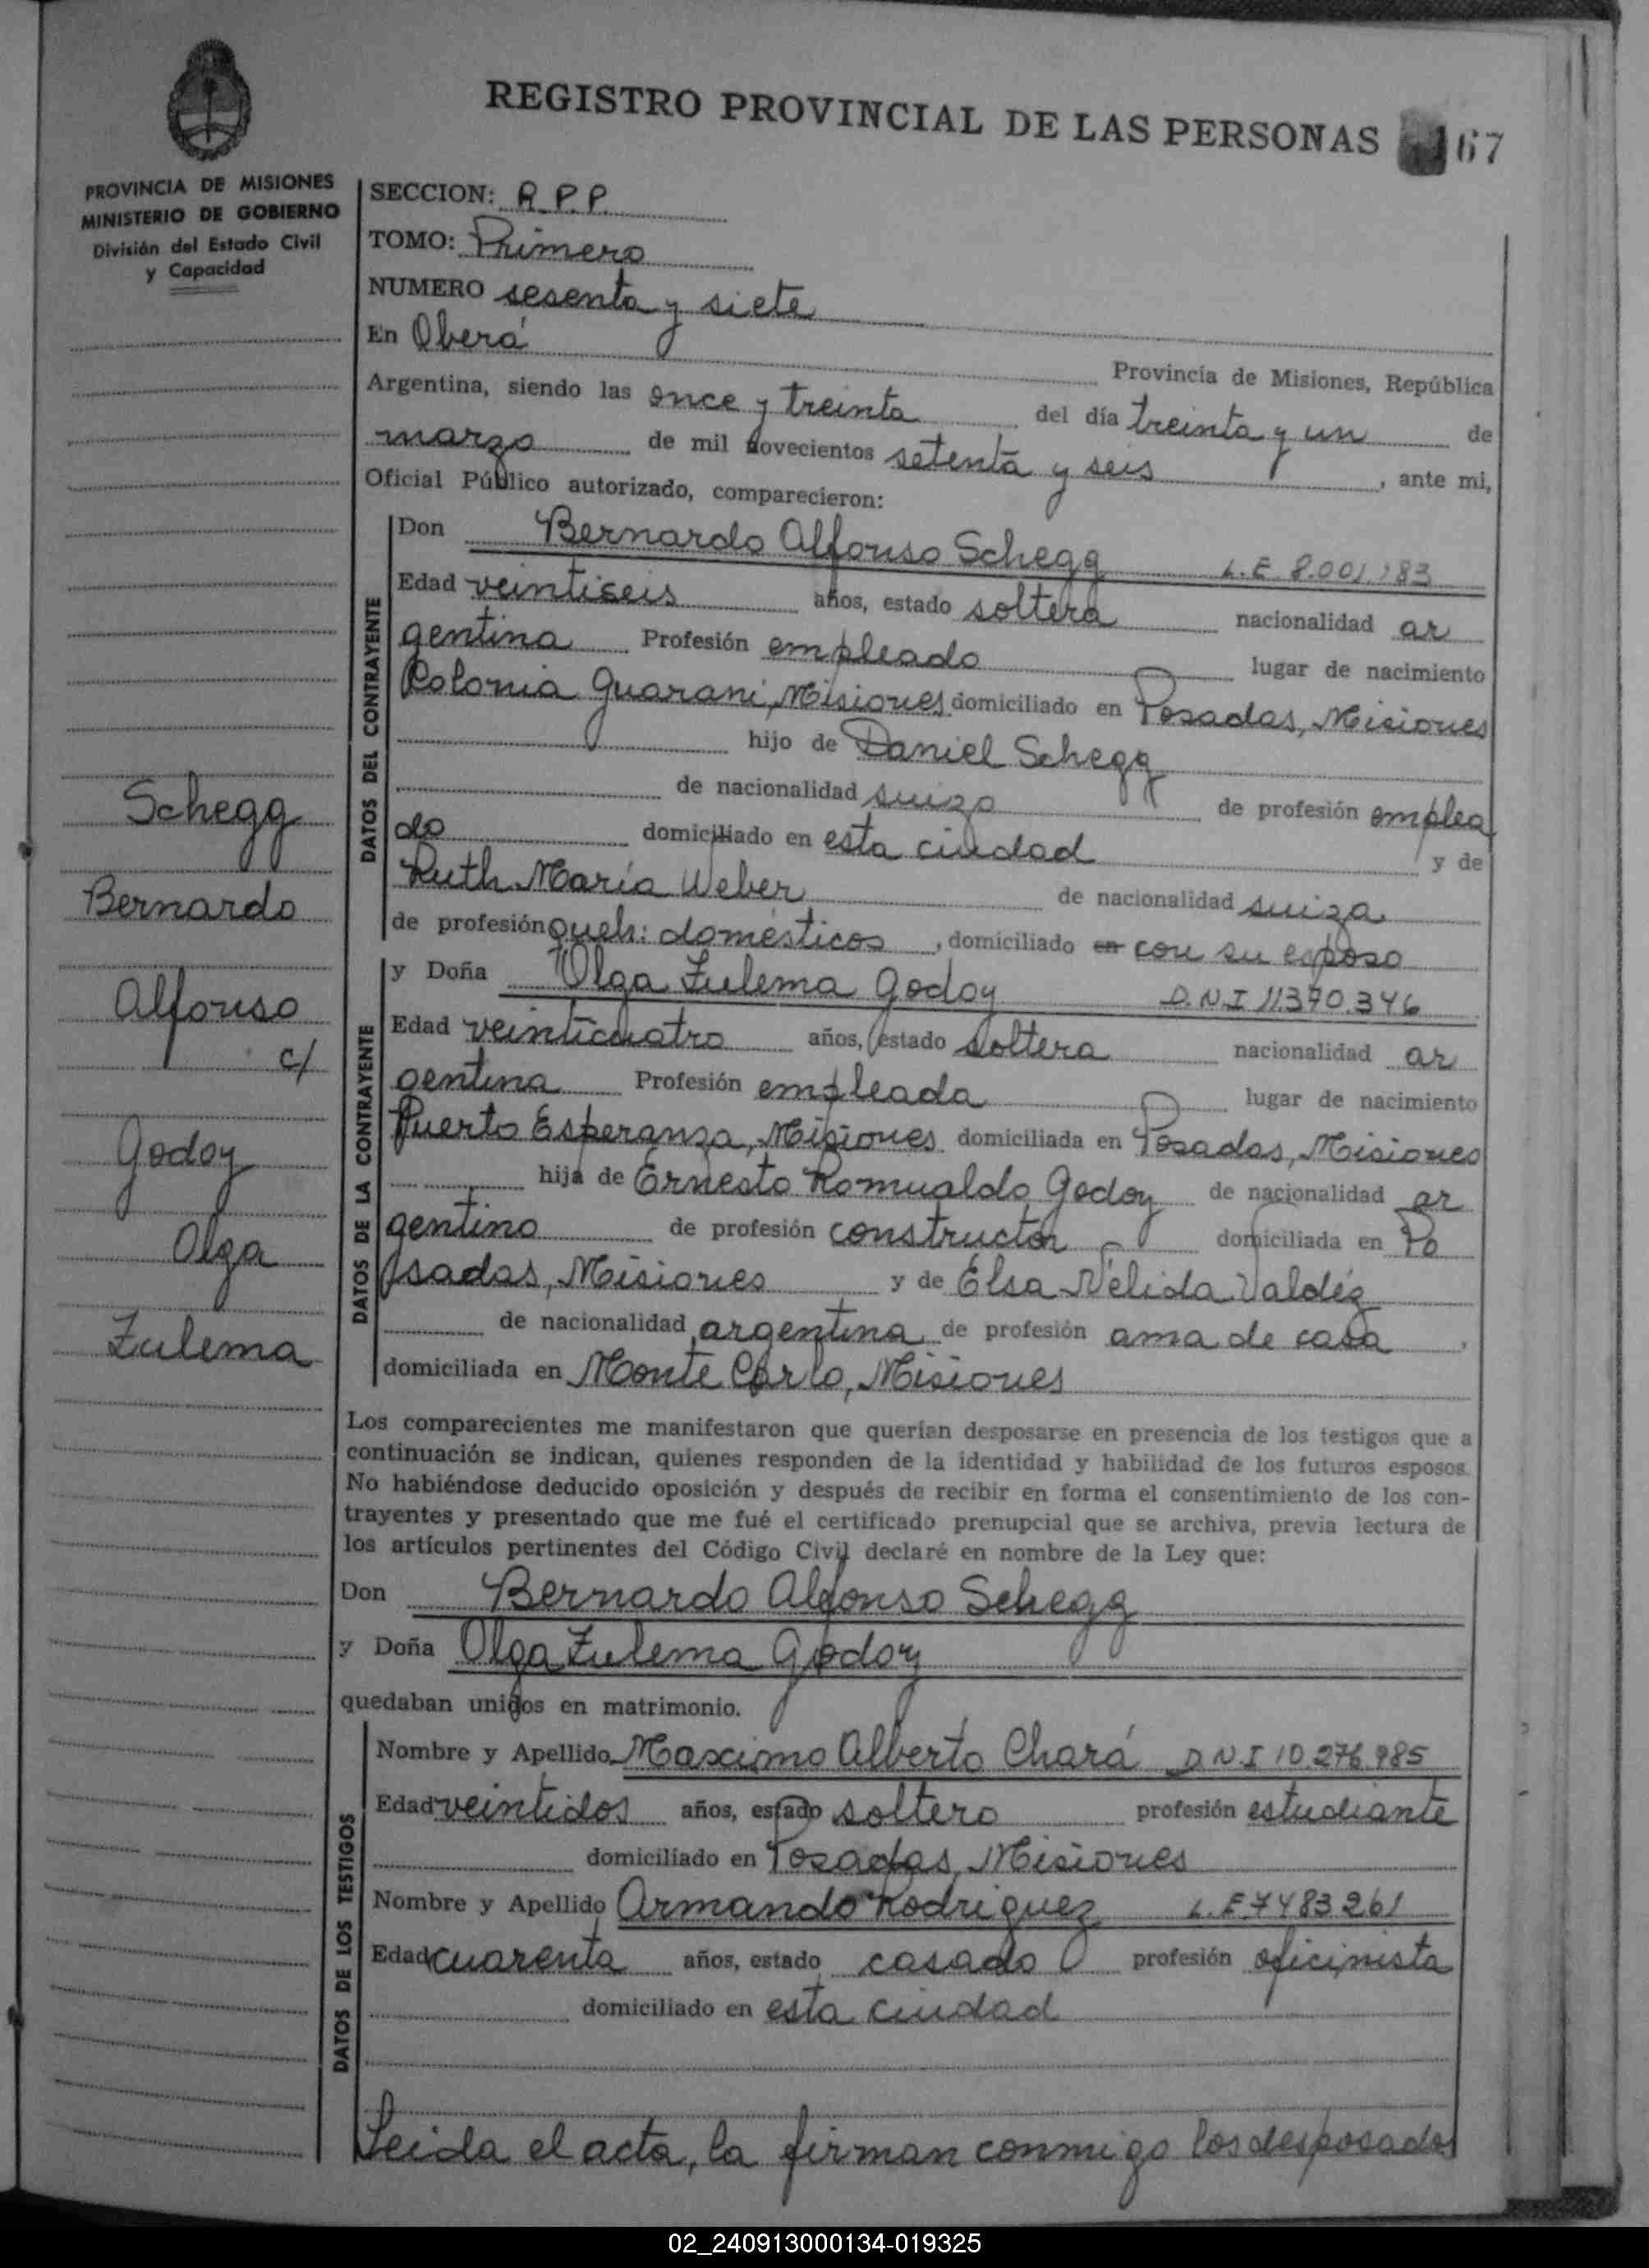 REGISTRO PROVINCIAL DE LAS PERSONAS 67
PROVINCIA DE MISIONES
MINISTERIO DE GOBIERNO
División del Estado Civil
y Capacidad
SECCION: R.P.P.
TOMO: Primero
NUMERO sesenta y siete
En Oberá
Provincia de Misiones, República
Argentina, siendo las once y treinta del día treinta y un de
marzo de mil novecientos setenta y seis, ante mi,
Oficial Público autorizado, comparecieron:
DATOS DEL CONTRAYENTE
Don Bernardo Alfonso Schegg L.E. 8.001.183
Edad veintiseis años, estado soltera nacionalidad ar
gentina Profesión empleado lugar de nacimiento
Colonia Guarani, Misiones domiciliado en Posadas, Misiones
hijo de Daniel Schegg
de nacionalidad suizo de profesión emplea
do domiciliado en esta ciudad y de
Ruth María Weber de nacionalidad suiza
de profesión queh: domésticos, domiciliado en con su esposo
DATOS DE LA CONTRAYENTE
y Doña Olga Zulema Godoy D.N.I 11.370.346
Edad veinticuatro años, estado soltera nacionalidad ar
gentina Profesión empleada lugar de nacimiento
Puerto Esperanza, Misiones domiciliada en Posadas, Misiones
hija de Ernesto Romualdo Godoy de nacionalidad ar
gentino de profesión constructor domiciliada en Po
sadas, Misiones y de Elsa Nélida Valdéz
de nacionalidad argentina de profesión ama de casa,
domiciliada en Monte Carlo, Misiones
Schegg
Bernardo
Alfonso
c/
Godoy
Olga
Zulema
Los comparecientes me manifestaron que querían desposarse en presencia de los testigos que a
continuación se indican, quienes responden de la identidad y habilidad de los futuros esposos.
No habiéndose deducido oposición y después de recibir en forma el consentimiento de los con-
trayentes y presentado que me fué el certificado prenupcial que se archiva, previa lectura de
los artículos pertinentes del Código Civil declaré en nombre de la Ley que:
Don Bernardo Alfonso Schegg
y Doña Olga Zulema Godoy
quedaban unidos en matrimonio.
DATOS DE LOS TESTIGOS
Nombre y Apellido Maximo Alberto Chará D.N.I 10.276.985
Edad veintidos años, estado soltero profesión estudiante
domiciliado en Posadas, Misiones
Nombre y Apellido Armando Rodriguez L.E. 7483261
Edad cuarenta años, estado casado profesión oficinista
domiciliado en esta ciudad
Leida el acta, la firman conmigo los desposados
02_240913000134-019325